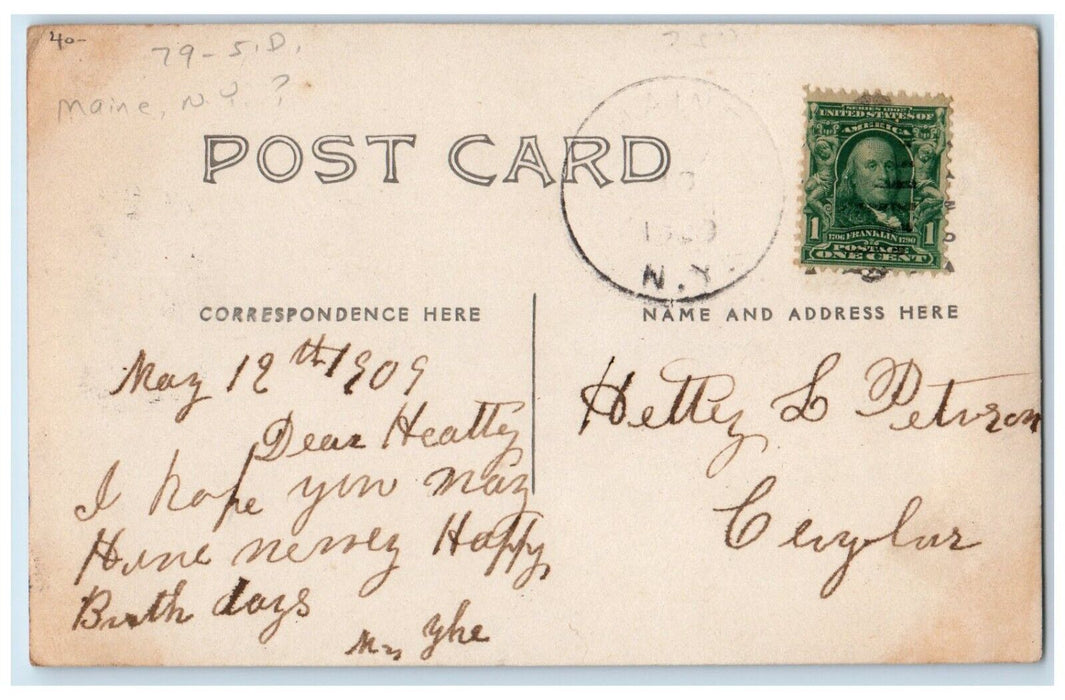 40-
79-S.D.
Maine, N.Y. ?
POST CARD
N.Y.
SERIES 1902
UNITED STATES OF
AMERICA
1706 FRANKLIN 1790
1 POSTAGE 1
ONE CENT
CORRESPONDENCE HERE
NAME AND ADDRESS HERE
May 12th 1909
Dear Heatty
I hope you may
Have
Happy
Birth days
Mrs
Hettey L Peterson